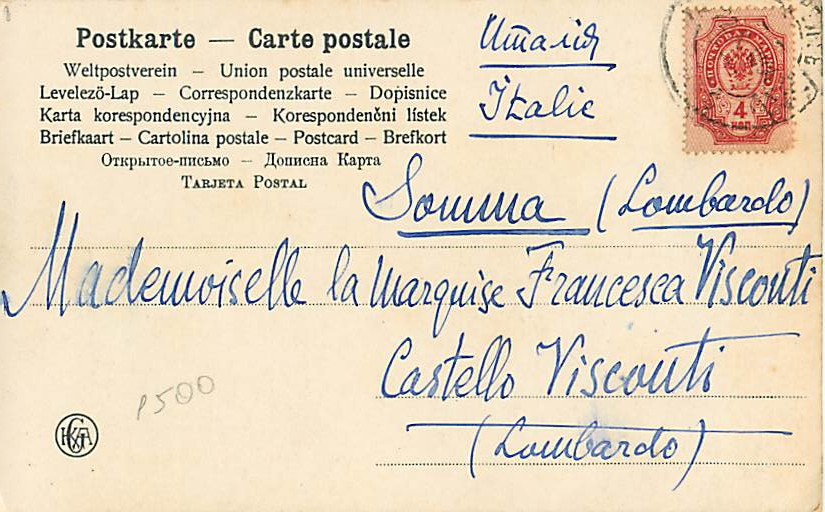 Postkarte — Carte postale
Weltpostverein – Union postale universelle
Levelezö-Lap – Correspondenzkarte – Dopisnice
Karta korespondencyjna – Korespondenčni lístek
Briefkaart – Cartolina postale – Postcard – Brefkort
Открытое-письмо – Дописна Карта
Tarjeta Postal
Италія
Italie
4
коп
Somma (Lombardo)
Mademoiselle la Marquise Francesca Visconti
Castello Visconti
(Lombardo)
1500